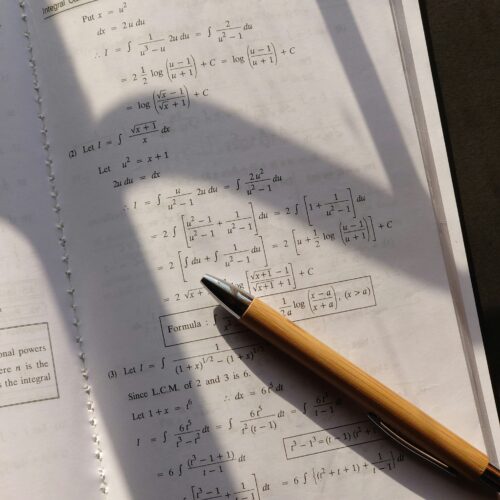 Integral
Put x = u²
dx = 2u du
∴ I = ∫ 1/(u³ − u) 2u du = ∫ 2/(u² − 1) du
= 2 1/2 log ((u − 1)/(u + 1)) + C = log ((u − 1)/(u + 1)) + C
= log ((√x − 1)/(√x + 1)) + C
(2) Let I = ∫ √(x + 1)/x dx
Let u² = x + 1
2u du = dx
∴ I = ∫ u/(u² − 1) 2u du = ∫ 2u²/(u² − 1) du
= 2 ∫ [(u² − 1)/(u² − 1) + 1/(u² − 1)] du = 2 ∫ [1 + 1/(u² − 1)] du
= 2 [∫ du + ∫ 1/(u² − 1) du] = 2 [u + 1/2 log ((u − 1)/(u + 1))] + C
= 2 √x + log [(√(x + 1) − 1)/(√(x + 1) + 1)] + C
Formula : 1/2a log ((x − a)/(x + a)), (x > a)
(3) Let I = ∫ 1/((1 + x)^1/2 − (1 + x)^1/3)
Since L.C.M. of 2 and 3 is 6.
Let 1 + x = t⁶ ∴ dx = 6t⁵ dt
I = ∫ 6t⁵/(t³ − t²) dt = ∫ 6t⁵/(t² (t − 1)) dt = ∫ 6t³/(t − 1) dt
t³ − 1³ = (t − 1) (t² +
= 6 ∫ (t³ − 1 + 1)/(t − 1) dt = 6 ∫ {(t² + t + 1) + 1/(t − 1)} dt
onal powers
ere n is the
s the integral